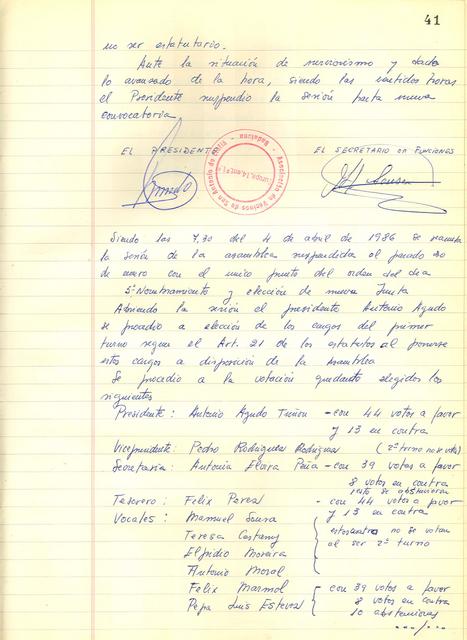 41
no ser estatutario.
Ante la situación de nerviosismo y dado
lo avanzado de la hora, siendo las veintidos horas
el Presidente suspendio la sesión hasta nueva
convocatoria
EL PRESIDENTE
EL SECRETARIO en FUNCIONES
Asociación de Vecinos de San Antonio de Padua - Badajoz -
Siendo las 7,30 del 4 de abril de 1986 se reanuda
la sesión de la asamblea suspendida el pasado 30
de enero con el unico punto del orden del dia
5º Nombramiento y elección de nueva Junta
Abriendo la sesión el presidente Antonio Agudo
se procedio a elección de los cargos del primer
turno segun el Art. 21 de los estatutos al ponerse
estos cargos a disposición de la Asamblea
Se procedio a la votación quedando elegidos los
siguientes
Presidente: Antonio Agudo - con 44 votos a favor
y 13 en contra
Vicepresidente: Pedro Rodriguez Rodriguez (2º turno no se vota)
Secretaria: Antonia Elvira Peña - con 39 votos a favor
8 votos en contra
se abstuvieron
Tesorero: Felix Perea - con 44 votos a favor
y 13 en contra
Vocales: Manuel Sousa
Teresa
estos cuatro no se votan
al ser 2º turno
Elpidio Moreira
Antonio Moral
Felix Marmol - con 39 votos a favor
Pepa Luis Esteves 8 votos en contra
10 abstenciones
.../...